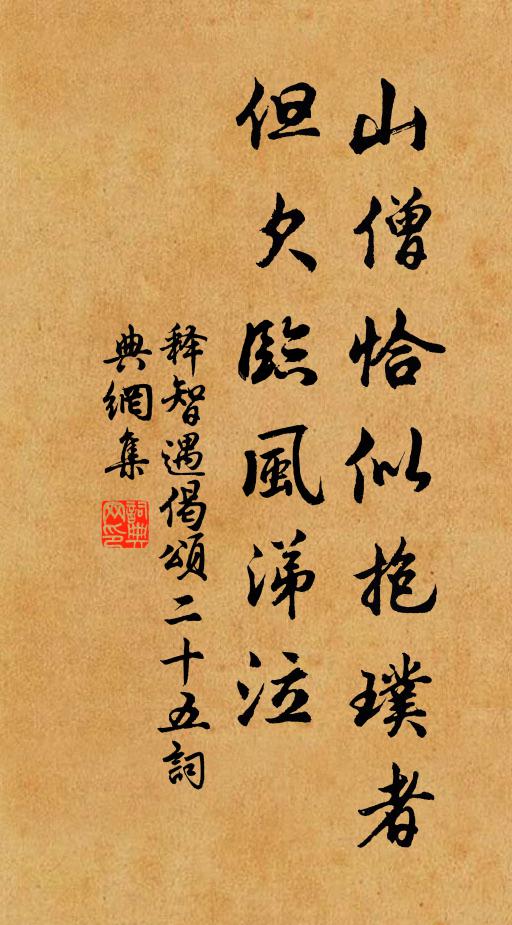 山僧恰似抱璞者
但欠臨風涕泣
释智遇偈頌二十五詞
典網集
詞典網印